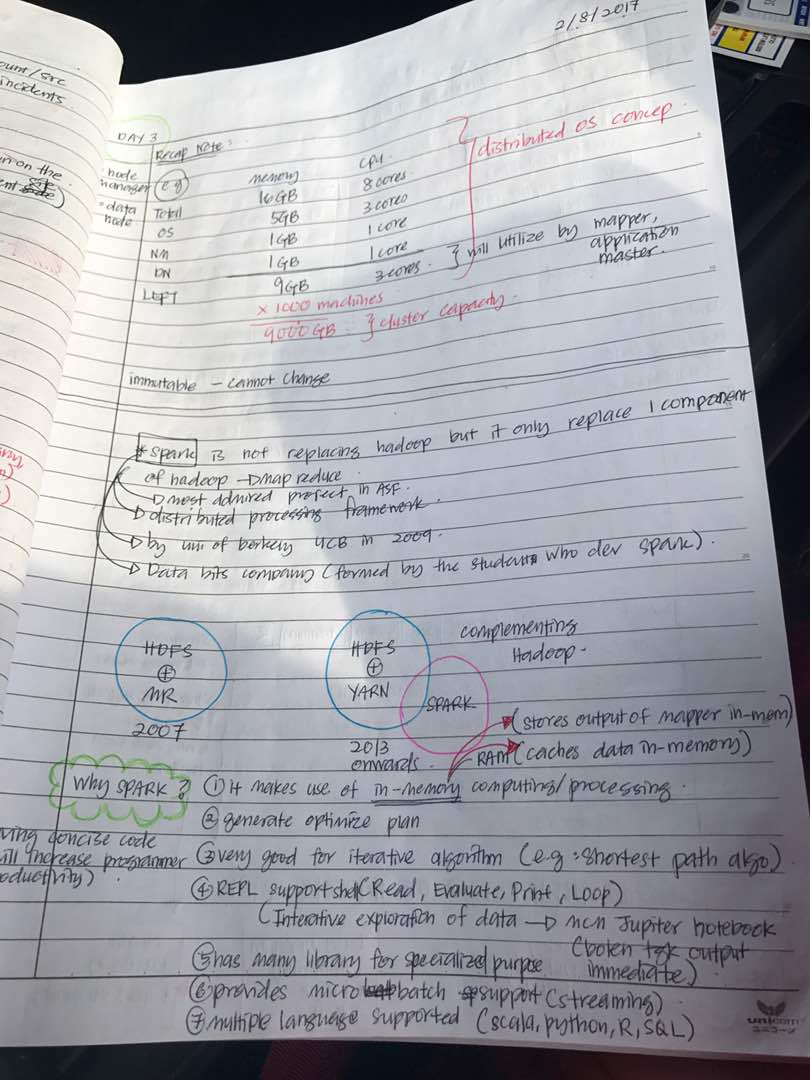 2/8/2017
ount/src
incidents
en on the
DAY 3
Recap Note:
node manager
= data node
e.g
memory CPU
Total 16GB 8 cores
OS 5GB 3 cores
NM 1GB 1 core
DN 1GB 1 core
LEFT 9GB 3 cores
distributed OS concep.
will utilize by mapper, application master.
x 1000 machines
9000 GB } cluster capacity.
immutable - cannot change
* Spark is not replacing hadoop but it only replace 1 component
of hadoop → map reduce.
→ most admired project in ASF.
→ distributed processing framework.
→ by uni of berkery UCB in 2009.
→ Data bits company (formed by the students who dev spark).
HDFS
+
MR
2007
HDFS
+
YARN
2013
onwards.
SPARK
complementing
Hadoop.
(stores output of mapper in-mem)
RAM (caches data in-memory)
Why SPARK?
① it makes use of in-memory computing/processing.
② generate optimize plan
ving concise code
will increase programmer
oductivity)
③ very good for iterative algorithm (e.g: shortest path algo)
④ REPL support shell (Read, Evaluate, Print, Loop)
(Interative exploration of data → mcm Jupiter notebook
(bolen tgk output
immediate)
⑤ has many library for specialized purpose
⑥ provides micro batch support (streaming)
⑦ multiple language supported (scala, python, R, SQL)
unicorn
ユニコーン